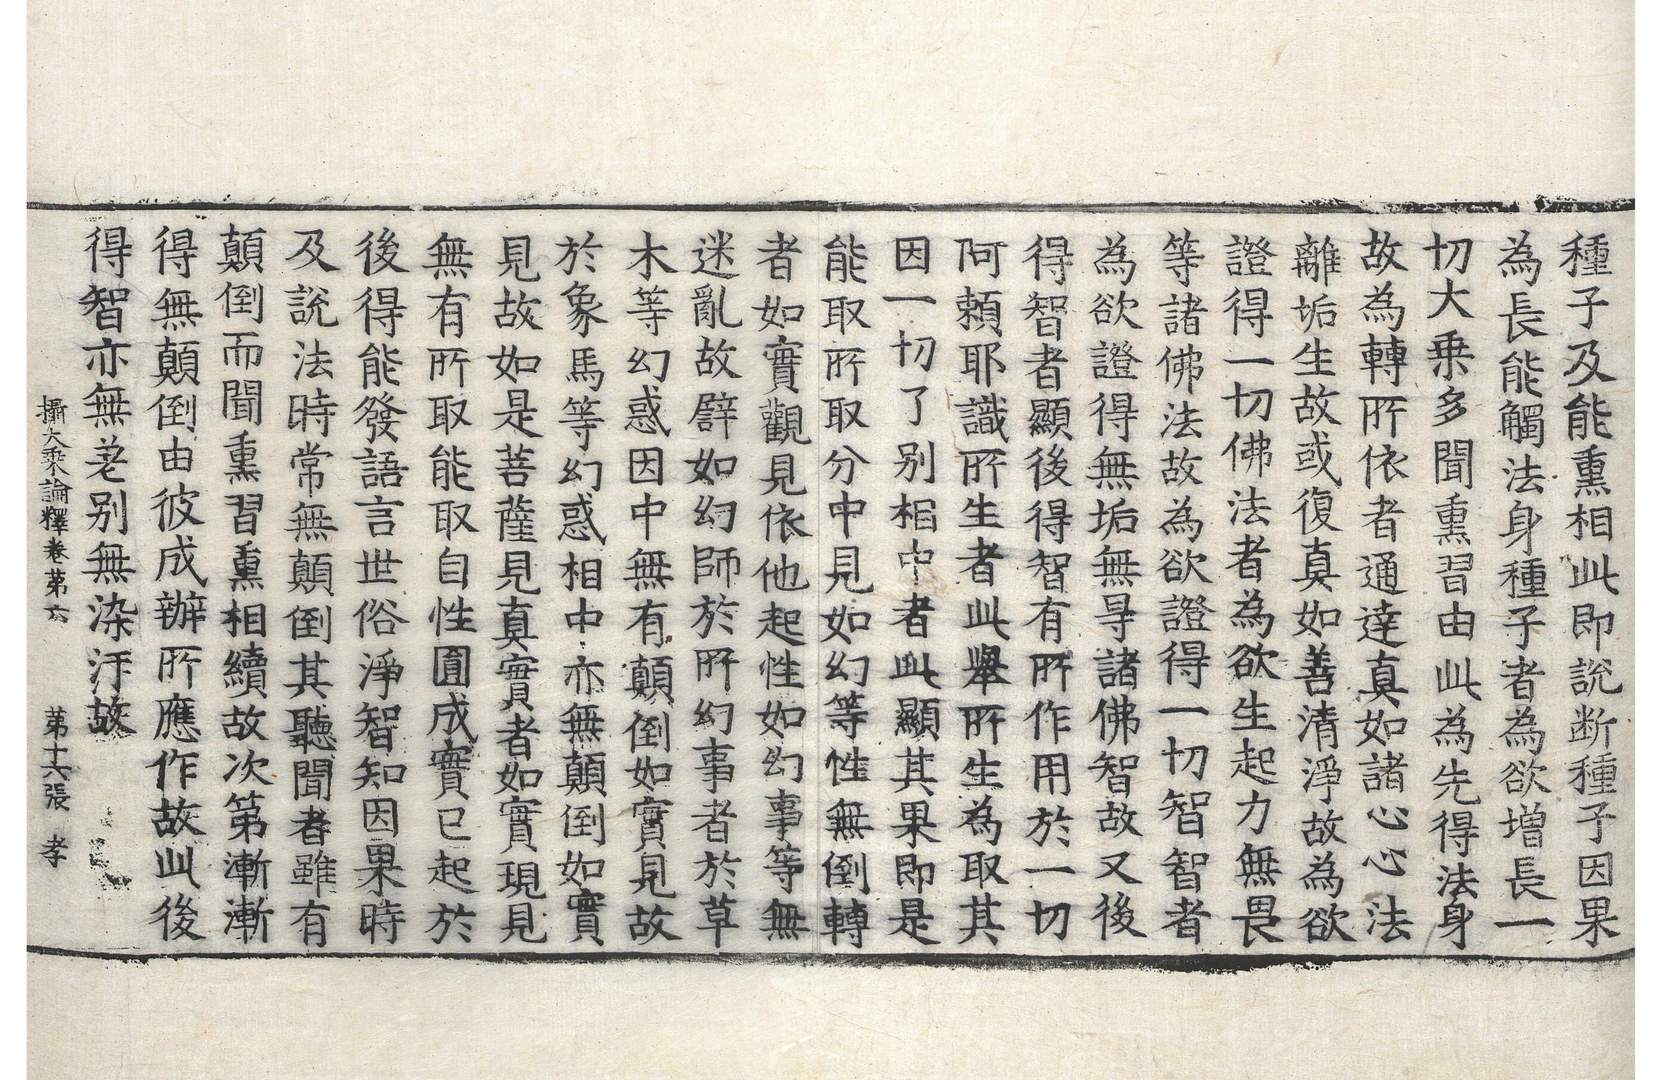 種子及能熏相此即說断種子因果
為長能觸法身種子者為欲增長一
切大乗多聞熏習由此為先得法身
故為轉所依者通達真如諸心心法
離垢生故或復真如善清淨故為欲
證得一切佛法者為欲生起力無畏
等諸佛法故為欲證得一切智智者
為欲證得無垢無㝵諸佛智故又後
得智者顯後得智有所作用於一切
阿頼耶識所生者此舉所生為取其
因一切了別相中者此顯其果即是
能取所取分中見如幻等性無倒轉
者如實觀見依他起性如幻事等無
迷亂故譬如幻師於所幻事者於草
木等幻惑因中無有顛倒如實見故
於象馬等幻惑相中亦無顛倒如實
見故如是菩薩見真實者如實現見
無有所取能取自性圓成實已起於
後得能發語言世俗淨智知因果時
及說法時常無顛倒其聽聞者雖有
顛倒而聞熏習熏相續故次第漸漸
得無顛倒由彼成辦所應作故此後
得智亦無差別無染汙故
攝大乗論釋卷第六 第十六張 孝